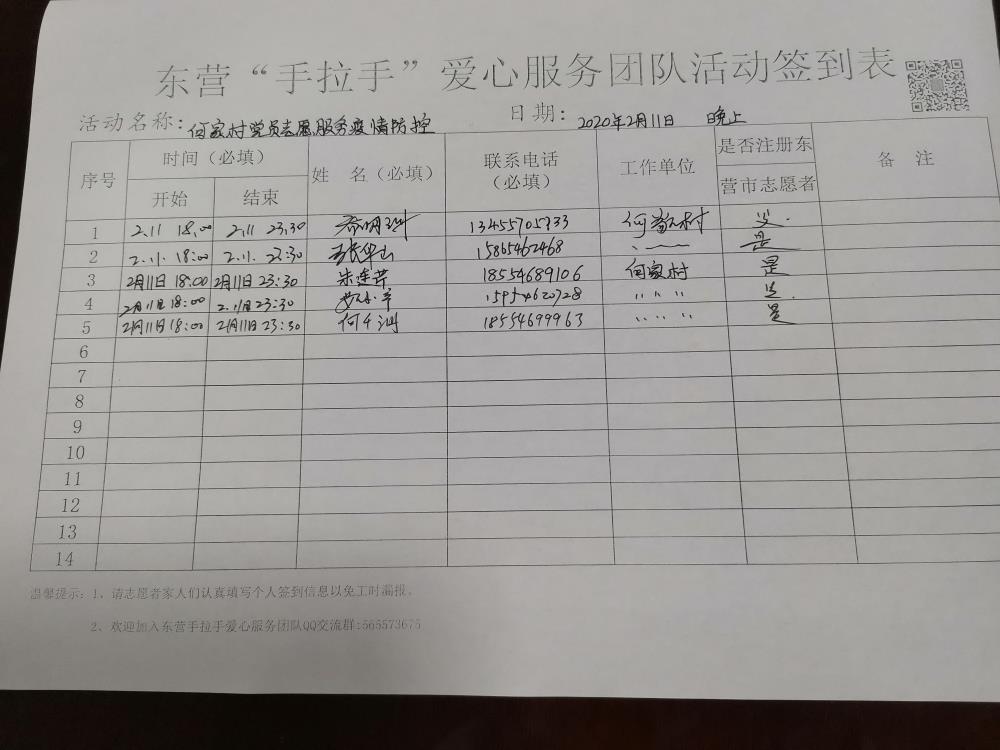 东营“手拉手”爱心服务团队活动签到表
活动名称：何家村党员志愿服务疫情防控 日期：2020年2月11日 晚上
序号 时间（必填） 姓 名（必填） 联系电话（必填） 工作单位 是否注册东营市志愿者 备 注
开始 结束
1 2.11 18.00 2.11 23.30 13455705333 何家村 是.
2 2.11. 18:00 2.11. 23:30 张华山 15865462468 是
3 2月11日 18:00 2月11日 23:30 朱莲芹 18554689106 何家村 是
4 2月11日 18:00 2.11日 23:30 15954620728 〃 〃 〃 是.
5 2月11日 18:00 2月11日 23:30 18554699963 〃 〃 〃 是
6
7
8
9
10
11
12
13
14
温馨提示：1、请志愿者家人们认真填写个人签到信息以免工时漏报。
2、欢迎加入东营手拉手爱心服务团队QQ交流群:565573675